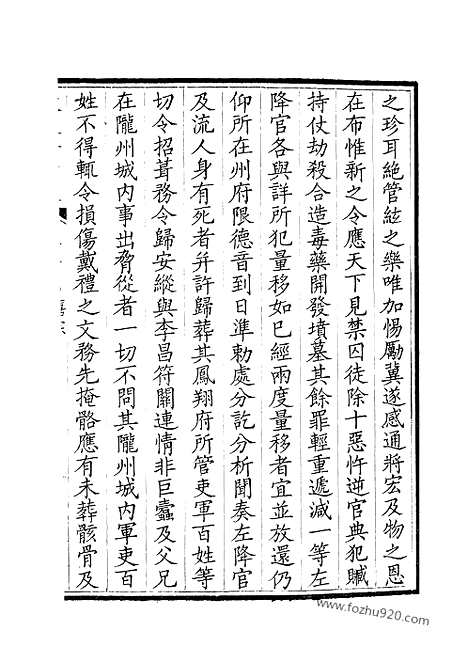 之珍耳絶管絃之樂唯加惕厲冀遂感通將宏及物之恩
在布惟新之令應天下見禁囚徒除十惡忤逆官典犯贓
持仗劫殺合造毒藥開發墳墓其餘罪輕重遞減一等左
降官各與詳所犯量移如已經兩度量移者宜並放還仍
仰所在州府限德音到日準勅處分訖分析聞奏左降官
及流人身有死者并許歸葬其鳳翔府所管吏軍百姓等
切令招葺務令歸安縱與李昌符關連情非巨蠹及父兄
在隴州城内事出脅從者一切不問其隴州城内軍吏百
姓不得輒令損傷戴禮之文務先掩骼應有未葬骸骨及
www.fozhu920.com